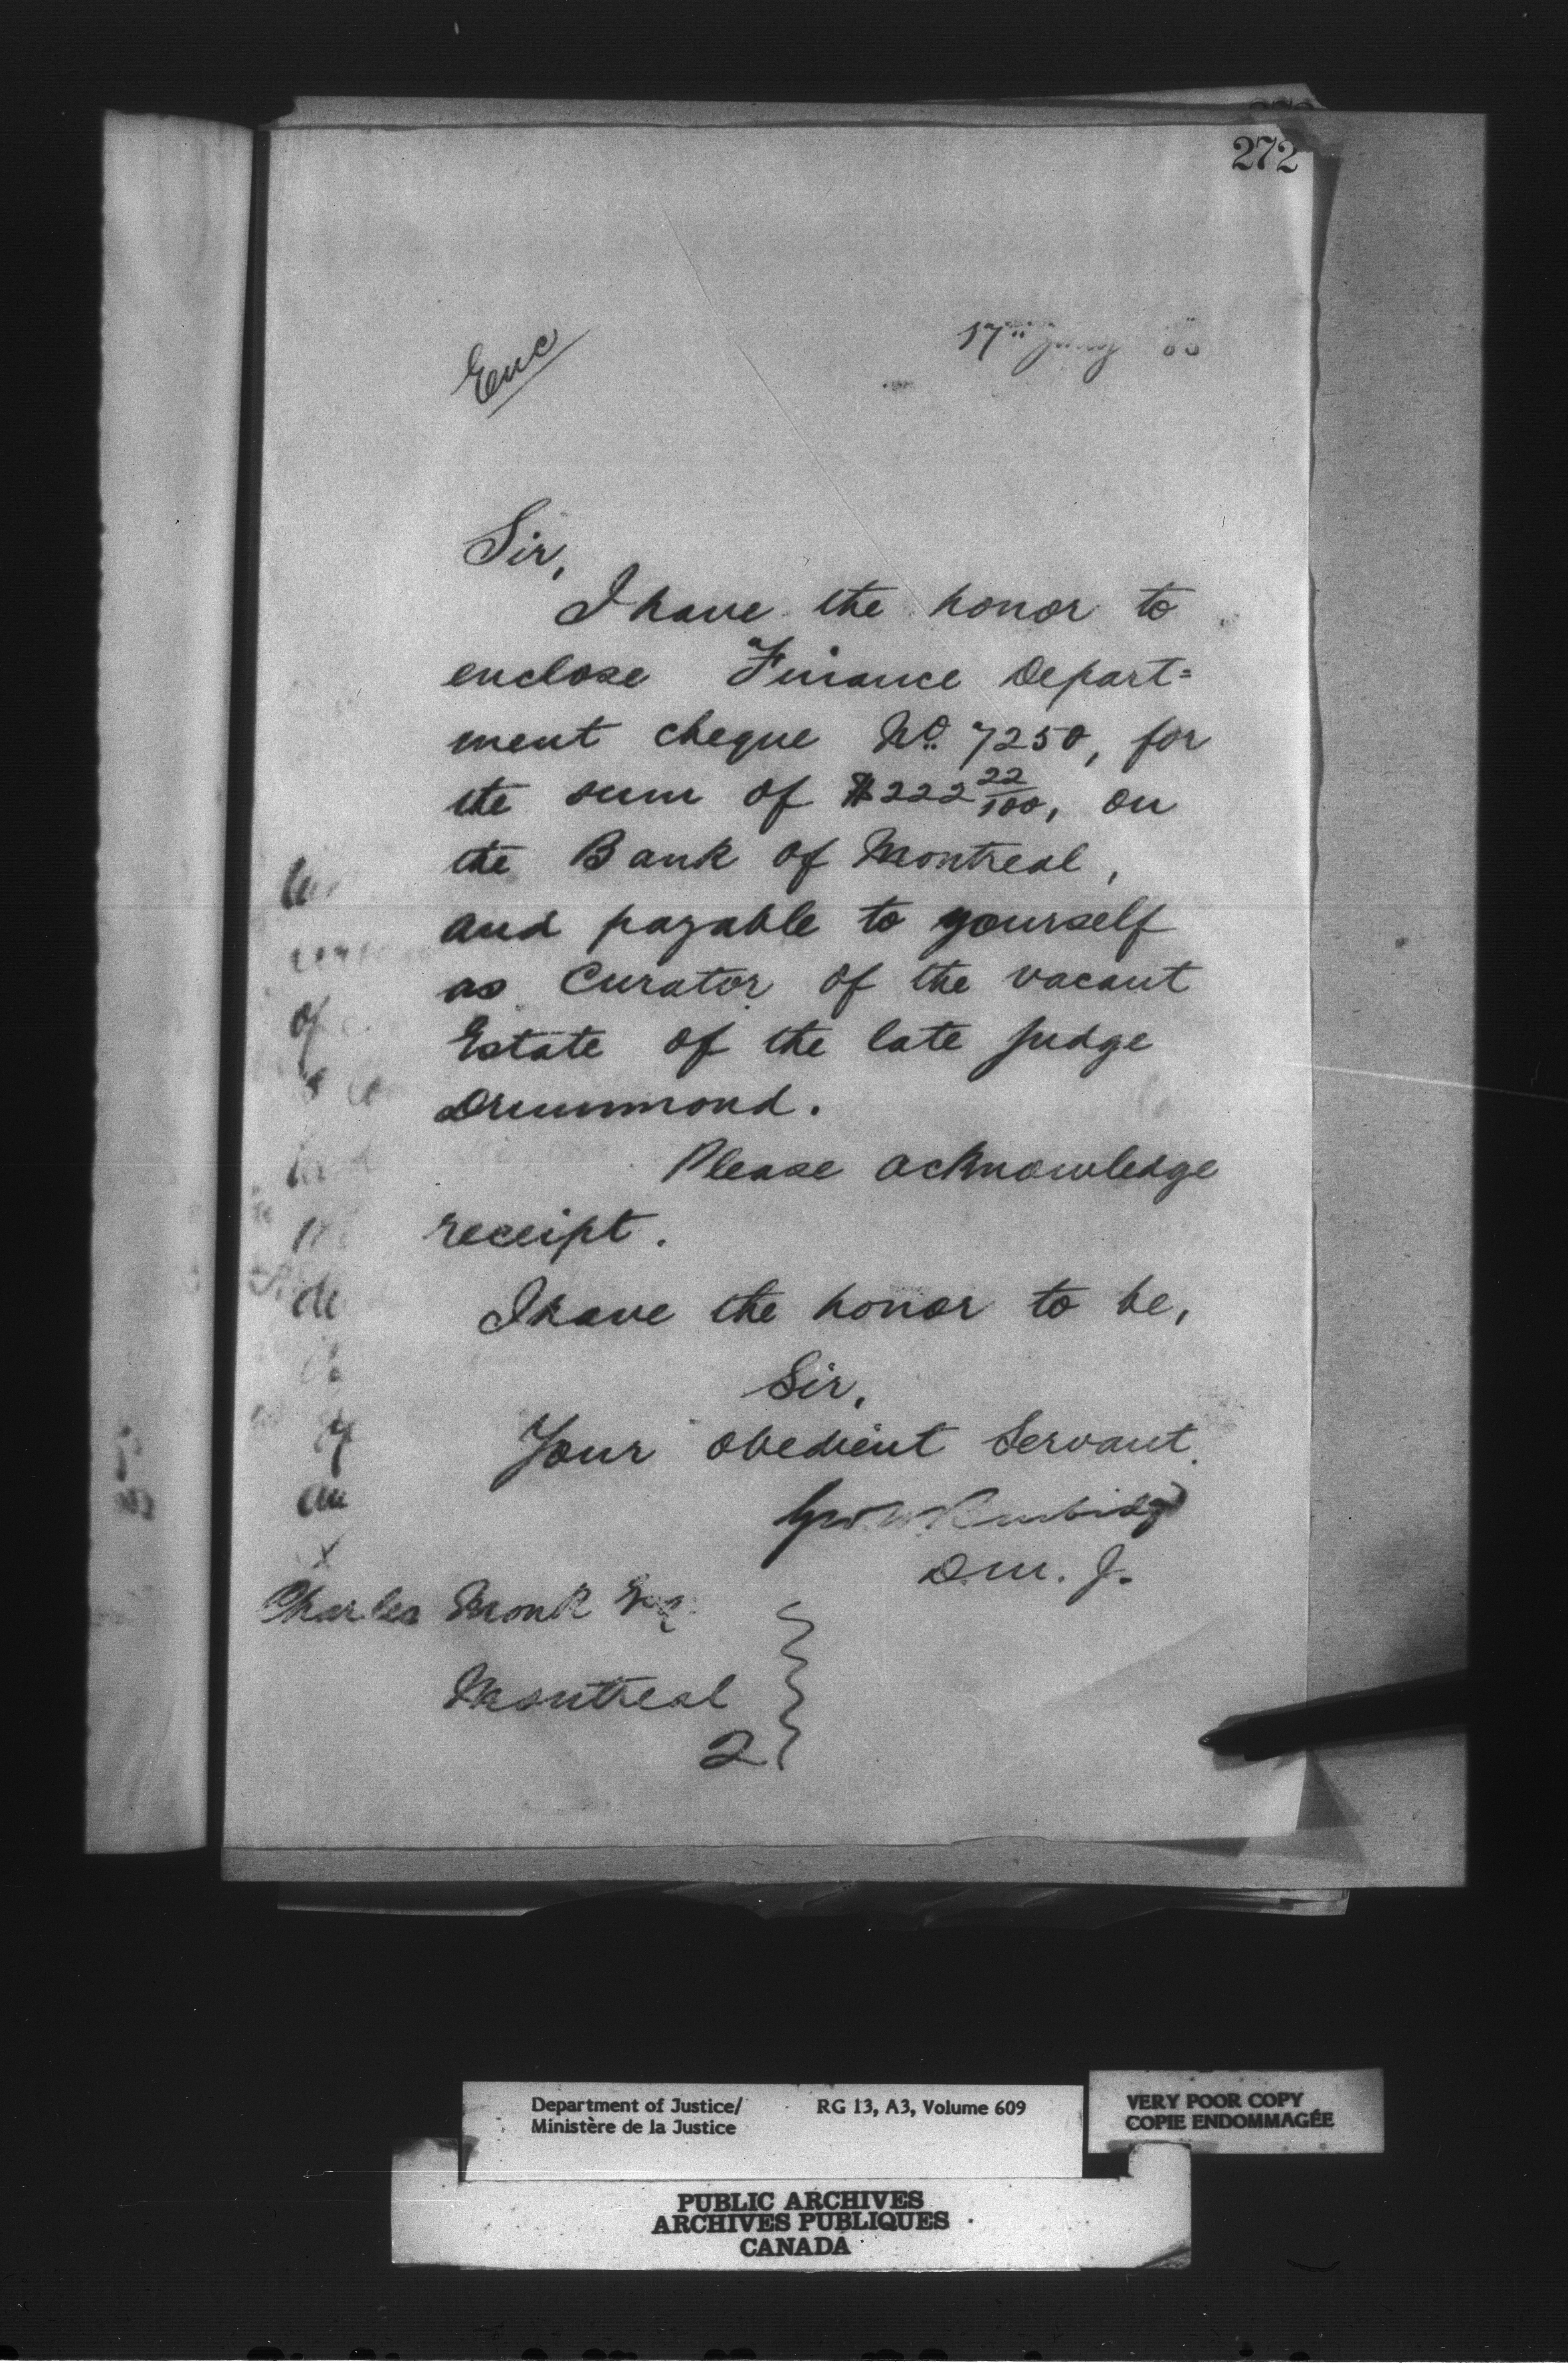 272
Enc
17th Jany 8
Sir,
I have the honor to
enclose Finance Depart=
ment cheque No. 7250, for
the sum of $222 22/100, on
the Bank of Montreal,
and payable to yourself
as Curator of the vacant
Estate of the late Judge
Drummond.
Please acknowledge
receipt.
I have the honor to be,
Sir,
Your obedient Servant.
Geo. W. Burbidge
D.M.J.
Charles Monk Esq.
Montreal
2
of
de
of
an
Department of Justice/
Ministère de la Justice
RG 13, A3, Volume 609
VERY POOR COPY
COPIE ENDOMMAGÉE
PUBLIC ARCHIVES
ARCHIVES PUBLIQUES
CANADA